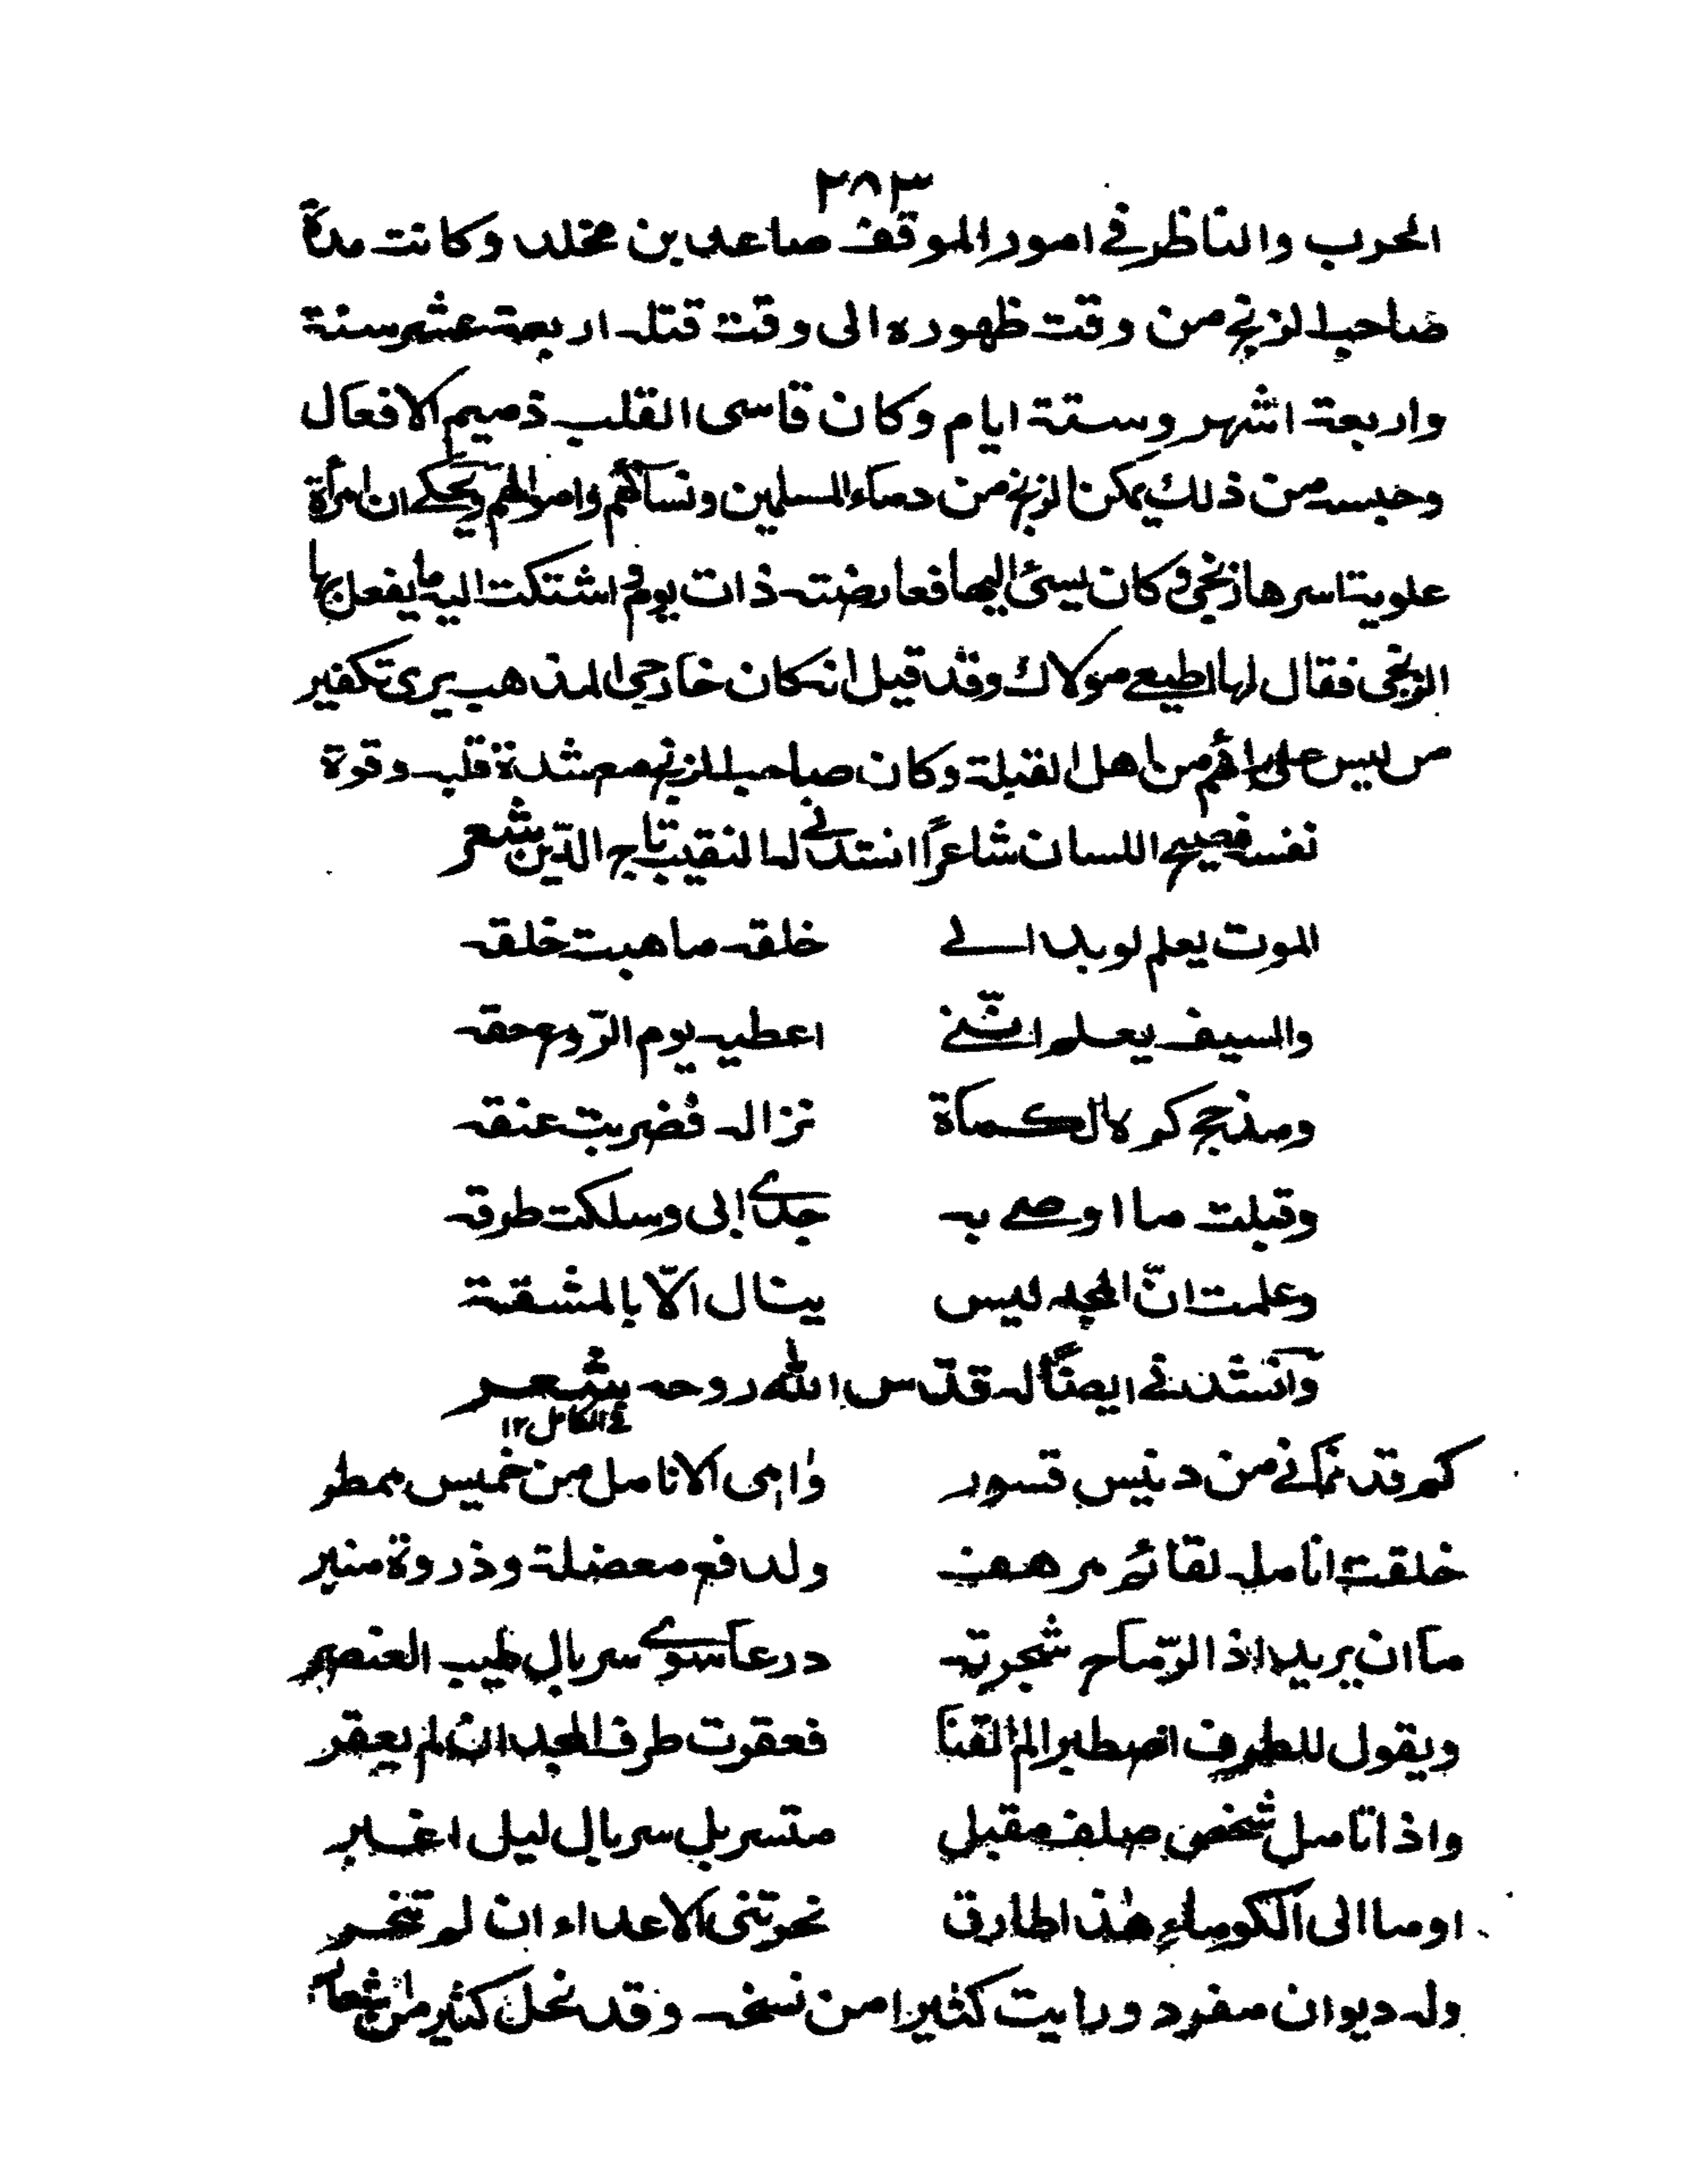 ٢٨٣
الحرب والناظر في امور الموفق صاعد بن مخلد وكانت مدة
صاحب الزنج من وقت ظهوره الى وقت قتله اربعة عشر سنة
واربعة اشهر وستة ايام وكان قاسى القلب ذميم الافعال
وحبسه من ذلك يمكن الزنج من دماء المسلمين ونسائهم واموالهم ويحكى ان امرأة
علوية اسرها زنجى وكان يسئ اليها فعارضته ذات يوم واشتكت اليه ما يفعل بها
الزنجى فقال لها اطيعى مولاك وقد قيل انه كان خارجي المذهب يرى تكفير
من ليس على رائهم من اهل القبلة وكان صاحب الزنج مع شدة قلبه وقوة
نفسه فصيح اللسان شاعرًا انشدنى له النقيب تاج الدّين شعر
الموت يعلم لو بدا لي خلقه ما هبت خلقه
والسيف يعلم انّني اعطيه يوم الرّوع حقه
ومذجج كره الكماة نزاله فضربت عنقه
وقبلت ما اوصى به جدى ابى وسلكت طرقه
وعلمت انّ المجد ليس ينال الّا بالمشقة
وانشدنى ايضًا له قدّس الله روحه شعر
فى الكامل ١٢
كم قد نمانى من رئيس قسور وامى الانامل من خميس ممطر
خلقت انامله لقائم مرهف ولدافع معضلة وذروة منبر
ما ان يريد اذا الرّماح شجرته درعا سوى سربال طيب العنصر
ويقول للطرف اصطبر الم القنا فعقرت طرف المجد ان لم يعقر
واذا تامل شخص مقبل متسربل سربال ليل اغبر
اوما الى الكوماء هذا طارق نحرتنى الاعداء ان لم تنحر
وله ديوان مفرد ورايت كثيرا من نسخه وقد نحل كثير من اشعاره